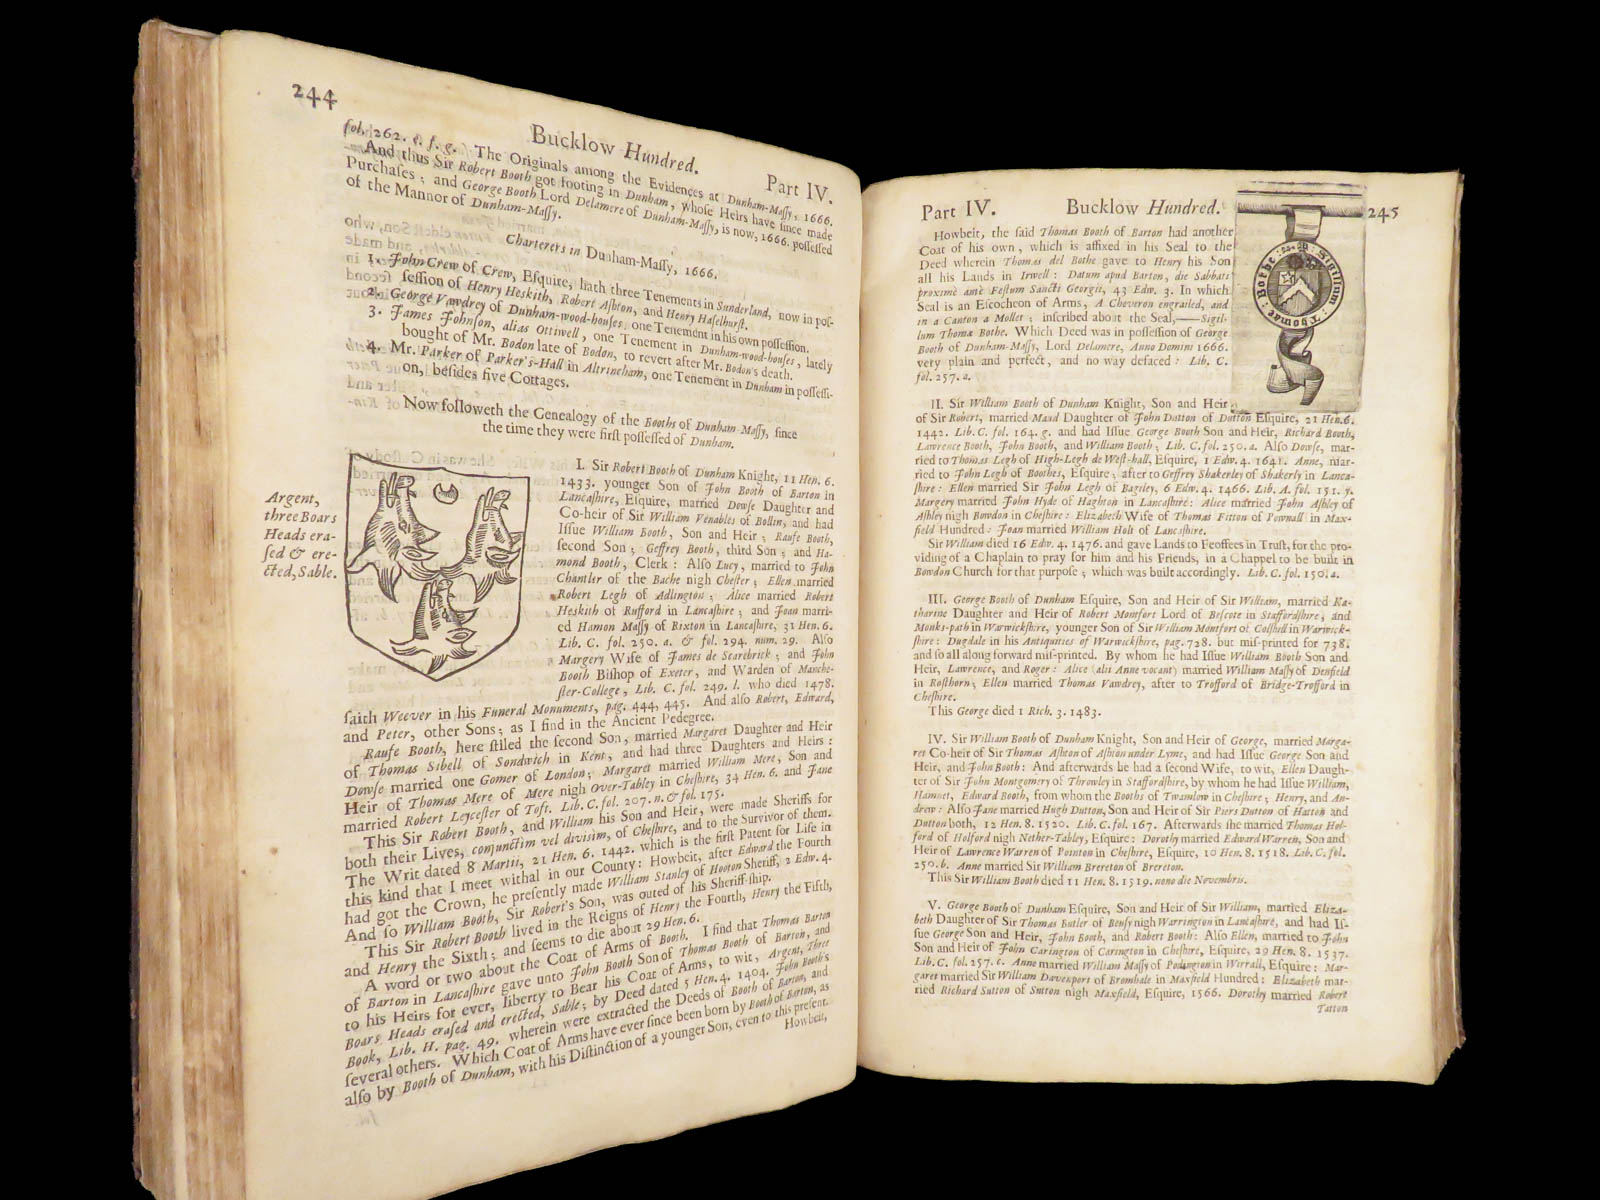 244
Bucklow Hundred.
Part IV.
fol. 262. e. f. g. The Originals among the Evidences at Dunham-Maſſy, 1666.
And thus Sir Robert Booth got footing in Dunham, whoſe Heirs have ſince made
Purchaſes; and George Booth Lord Delamere of Dunham-Maſſy, is now, 1666. poſſeſſed
of the Mannor of Dunham-Maſſy.
Charterers in Dunham-Maſſy, 1666.
1. John Crew of Crew, Eſquire, hath three Tenements in Sunderland, now in poſ-
ſeſſion of Henry Heskith, Robert Aſhton, and Henry Haſelhurſt.
2. George Vawdrey of Dunham-wood-houſes, one Tenement in his own poſſeſſion.
3. James Johnſon, alias Ottiwell, one Tenement in Dunham-wood-houſes, lately
bought of Mr. Bodon late of Bodon, to revert after Mr. Bodon's death.
4. Mr. Parker of Parker's-Hall in Altrincham, one Tenement in Dunham in poſſeſſi-
on, beſides five Cottages.
Now followeth the Genealogy of the Booths of Dunham-Maſſy, ſince
the time they were firſt poſſeſſed of Dunham.
Argent,
three Boars
Heads era-
ſed & ere-
cted, Sable.
I. Sir Robert Booth of Dunham Knight, 11 Hen. 6.
1433. younger Son of John Booth of Barton in
Lancaſhire, Eſquire, married Dowſe Daughter and
Co-heir of Sir William Venables of Bollin, and had
Iſſue William Booth, Son and Heir; Raufe Booth,
ſecond Son; Geffrey Booth, third Son; and Ha-
mond Booth, Clerk: Alſo Lucy, married to John
Chantler of the Bache nigh Cheſter; Ellen married
Robert Legh of Adlington; Alice married Robert
Heskith of Rufford in Lancaſhire; and Joan marri-
ed Hamon Maſſy of Rixton in Lancaſhire, 31 Hen. 6.
Lib. C. fol. 250. a. & fol. 294. num. 29. Alſo
Margery Wife of James de Scarebrick; and John
Booth Biſhop of Exeter, and Warden of Manche-
ſter-College, Lib. C. fol. 249. l. who died 1478.
ſaith Weever in his Funeral Monuments, pag. 444, 445. And alſo Robert, Edward,
and Peter, other Sons; as I find in the Ancient Pedegree.
Raufe Booth, here ſtiled the ſecond Son, married Margaret Daughter and Heir
of Thomas Sibell of Sondwich in Kent, and had three Daughters and Heirs:
Dowſe married one Gomer of London; Margaret married William Mere, Son and
Heir of Thomas Mere of Mere nigh Over-Tabley in Cheſhire, 34 Hen. 6. and Jane
married Robert Leyceſter of Toft. Lib. C. fol. 207. n. & fol. 175.
This Sir Robert Booth, and William his Son and Heir, were made Sheriffs for
both their Lives, conjunctim vel diviſim, of Cheſhire, and to the Survivor of them.
The Writ dated 8 Martii, 21 Hen. 6. 1442. which is the firſt Patent for Life in
this kind that I meet withal in our County: Howbeit, after Edward the Fourth
had got the Crown, he preſently made William Stanley of Hooton Sheriff, 2 Edw. 4.
And ſo William Booth, Sir Robert's Son, was outed of his Sheriff-ſhip.
This Sir Robert Booth lived in the Reigns of Henry the Fourth, Henry the Fifth,
and Henry the Sixth; and ſeems to die about 29 Hen. 6.
A word or two about the Coat of Arms of Booth. I find that Thomas Barton
of Barton in Lancaſhire gave unto John Booth Son of Thomas Booth of Barton, and
to his Heirs for ever, liberty to Bear his Coat of Arms, to wit, Argent, Three
Boars Heads eraſed and erected, Sable; by Deed dated 5 Hen. 4. 1404. John Booth's
Book, Lib. H. pag. 49. wherein were extracted the Deeds of Booth of Barton, and
ſeveral others. Which Coat of Arms have ever ſince been born by Booth of Barton, as
alſo by Booth of Dunham, with his Diſtinction of a younger Son, even to this preſent.
Howbeit,
Part IV.
Bucklow Hundred.
245
Howbeit, the ſaid Thomas Booth of Barton had another
Coat of his own, which is affixed in his Seal to the
Deed wherein Thomas del Bothe gave to Henry his Son
all his Lands in Irwell: Datum apud Barton, die Sabbati
proximè antè Feſtum Sancti Georgii, 43 Edw. 3. In which
Seal is an Eſcocheon of Arms, A Cheveron engrailed, and
in a Canton a Mollet; inſcribed about the Seal,——Sigil-
lum Thomæ Bothe. Which Deed was in poſſeſſion of George
Booth of Dunham-Maſſy, Lord Delamere, Anno Domini 1666.
very plain and perfect, and no way defaced: Lib. C.
fol. 257. a.
Sigillum Thomae Bothe
II. Sir William Booth of Dunham Knight, Son and Heir
of Sir Robert, married Maud Daughter of John Dutton of Dutton Eſquire, 21 Hen. 6.
1442. Lib. C. fol. 164. g. and had Iſſue George Booth Son and Heir, Richard Booth,
Lawrence Booth, John Booth, and William Booth; Lib. C. fol. 250. a. Alſo Dowſe, mar-
ried to Thomas Legh of High-Legh de Weſt-hall, Eſquire, 1 Edw. 4. 1641. Anne, mar-
ried to John Legh of Boothes, Eſquire; after to Geffrey Shakerley of Shakerly in Lanca-
ſhire: Ellen married Sir John Legh of Bagiley, 6 Edw. 4. 1466. Lib. A. fol. 151. y.
Margery married John Hyde of Haghton in Lancaſhire: Alice married John Aſhley of
Aſhley nigh Bowdon in Cheſhire: Elizabeth Wife of Thomas Fitton of Pownall in Max-
field Hundred: Joan married William Holt of Lancaſhire.
Sir William died 16 Edw. 4. 1476. and gave Lands to Feoffees in Truſt, for the pro-
viding of a Chaplain to pray for him and his Friends, in a Chappel to be built in
Bowdon Church for that purpoſe; which was built accordingly. Lib. C. fol. 150. a.
III. George Booth of Dunham Eſquire, Son and Heir of Sir William, married Ka-
tharine Daughter and Heir of Robert Montfort Lord of Beſcote in Staffordſhire, and
Monks-path in Warwickſhire, younger Son of Sir William Montfort of Colſhill in Warwick-
ſhire: Dugdale in his Antiquities of Warwickſhire, pag. 728. but miſ-printed for 738.
and ſo all along forward miſ-printed. By whom he had Iſſue William Booth Son and
Heir, Lawrence, and Roger: Alice (alii Anne vocant) married William Maſſy of Denfield
in Roſthorn; Ellen married Thomas Vawdrey, after to Trofford of Bridge-Trofford in
Cheſhire.
This George died 1 Rich. 3. 1483.
IV. Sir William Booth of Dunham Knight, Son and Heir of George, married Marga-
ret Co-heir of Sir Thomas Aſhton of Aſhton under Lyme, and had Iſſue George Son and
Heir, and John Booth: And afterwards he had a ſecond Wife, to wit, Ellen Daugh-
ter of Sir John Montgomery of Throwley in Staffordſhire, by whom he had Iſſue William,
Hamnet, Edward Booth, from whom the Booths of Twamlow in Cheſhire; Henry, and An-
drew: Alſo Jane married Hugh Dutton, Son and Heir of Sir Piers Dutton of Hatton and
Dutton both, 12 Hen. 8. 1520. Lib. C. fol. 167. Afterwards ſhe married Thomas Hol-
ford of Holford nigh Nether-Tabley, Eſquire: Dorothy married Edward Warren, Son and
Heir of Lawrence Warren of Pointon in Cheſhire, Eſquire, 10 Hen. 8. 1518. Lib. C. fol.
250. b. Anne married Sir William Brereton of Brereton.
This Sir William Booth died 11 Hen. 8. 1519. nono die Novembris.
V. George Booth of Dunham Eſquire, Son and Heir of Sir William, married Eliza-
beth Daughter of Sir Thomas Butler of Beuſy nigh Warrington in Lancaſhire, and had Iſ-
ſue George Son and Heir, John Booth, and Robert Booth: Alſo Ellen, married to John
Son and Heir of John Carington of Carington in Cheſhire, Eſquire, 29 Hen. 8. 1537.
Lib. C. fol. 257. c. Anne married William Maſſy of Podington in Wirrall, Eſquire: Mar-
garet married Sir William Davenport of Bromhale in Maxfield Hundred: Elizabeth mar-
ried Richard Sutton of Sutton nigh Maxfield, Eſquire, 1566. Dorothy married Robert
Tatton